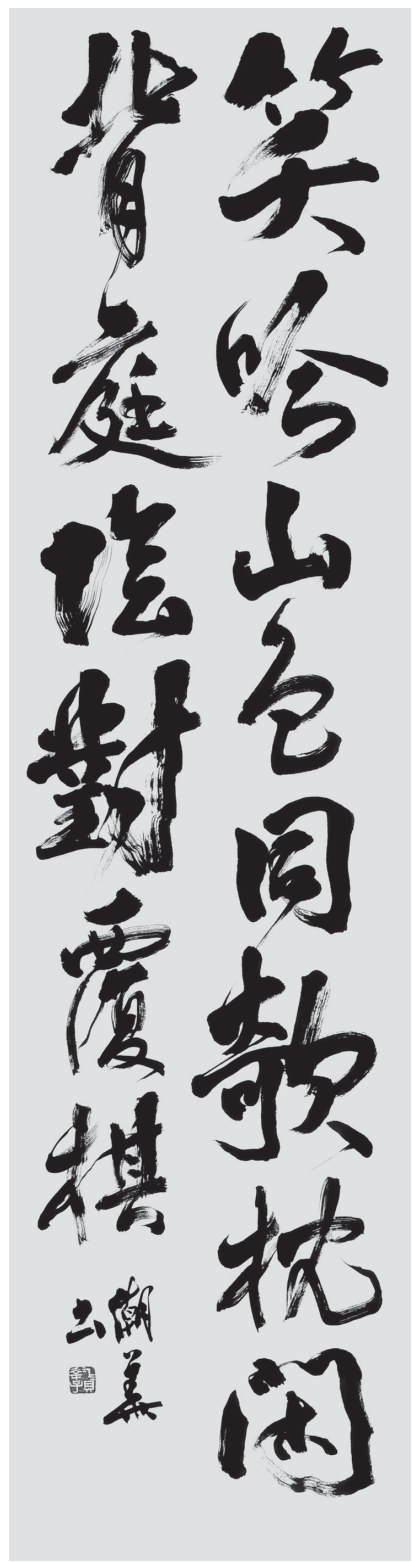 笑吟山色同欹枕閑
背庭陰對覆棋
潮華